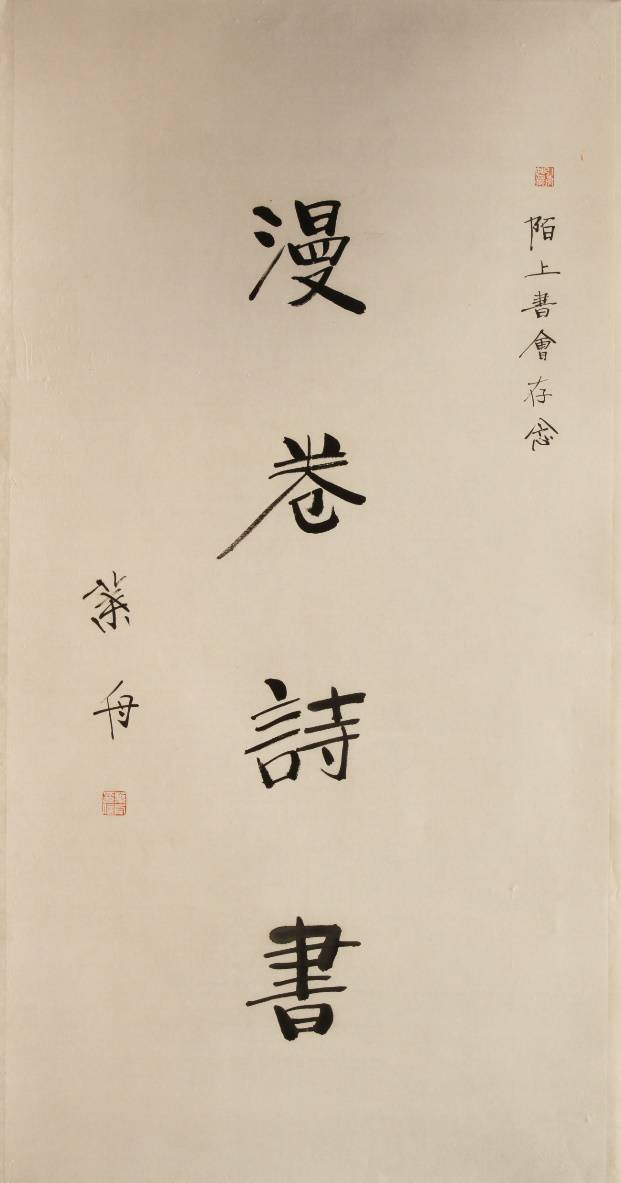 陌上書會存念
漫卷詩書
葉舟